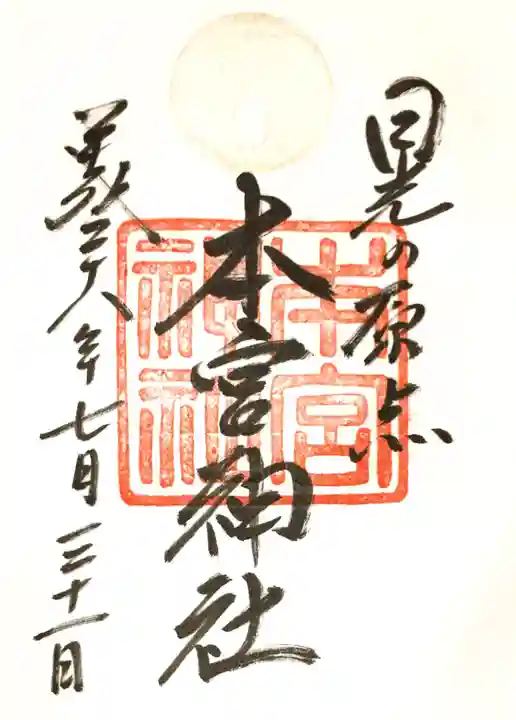 日光の原点
本宮神社
平成二十八年七月三十一日
本宮神社